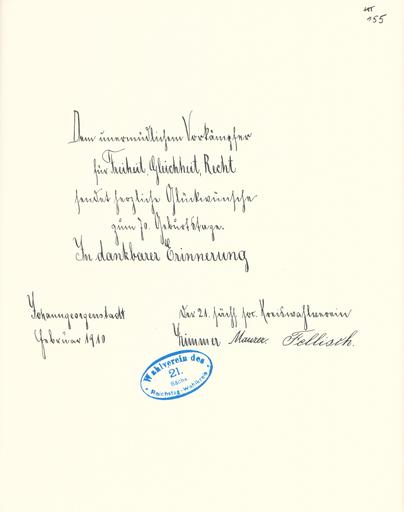 155
Dem unermüdlichem Vorkämpfer
für Freiheit, Gleichheit, Recht
sendet herzliche Glückwünsche
zum 70. Geburtstage.
In dankbarer Erinnerung
Johanngeorgenstadt
Februar 1910
Der 21. sächs. soc. Kreiswahlverein
Zimmer Maurer. Fellisch.
Wahlverein des
21.
Sächs.
Reichstag-Wahlkreis